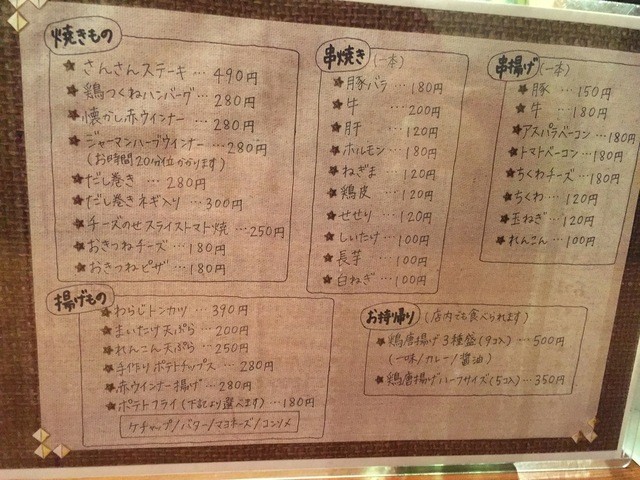 焼きもの
★さんさんステーキ…490円
★鶏つくねハンバーグ…280円
★懐かし赤ウインナー…280円
★ジャーマンハーブウインナー…280円
(お時間20分位かかります)
★だし巻き…280円
★だし巻きネギ入り…300円
★チーズのせスライストマト焼…250円
★おきつねチーズ…180円
★おきつねピザ…180円
串焼き(一本)
★豚バラ…180円
★牛…200円
★肝…120円
★ホルモン…180円
★ねぎま…120円
★鶏皮…120円
★せせり…120円
★しいたけ…100円
★長芋…100円
★白ねぎ…100円
串揚げ(一本)
★豚…150円
★牛…180円
★アスパラベーコン…180円
★トマトベーコン…180円
★ちくわチーズ…180円
★ちくわ…120円
★玉ねぎ…120円
★れんこん…100円
揚げもの
★わらじトンカツ…390円
★まいたけ天ぷら…200円
★れんこん天ぷら…250円
★手作りポテトチップス…280円
★赤ウインナー揚げ…280円
★ポテトフライ(下記より選べます)…180円
ケチャップ/バター/マヨネーズ/コンソメ
お持ち帰り(店内でも食べられます)
★鶏唐揚げ3種盛(9コ入)…500円
(一味/カレー/醤油)
★鶏唐揚げハーフサイズ(5コ入)…350円